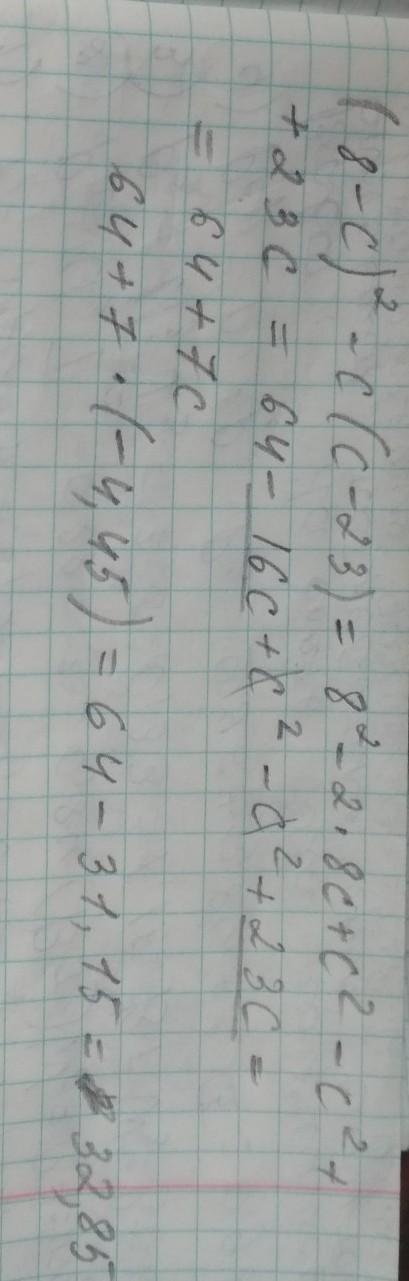 (8-c)² - c(c-23) = 8² - 2·8c + c² - c² +
+ 23c = 64 - 16c + c² - c² + 23c =
= 64 + 7c
64 + 7·(-4,45) = 64 - 31,15 = 32,85